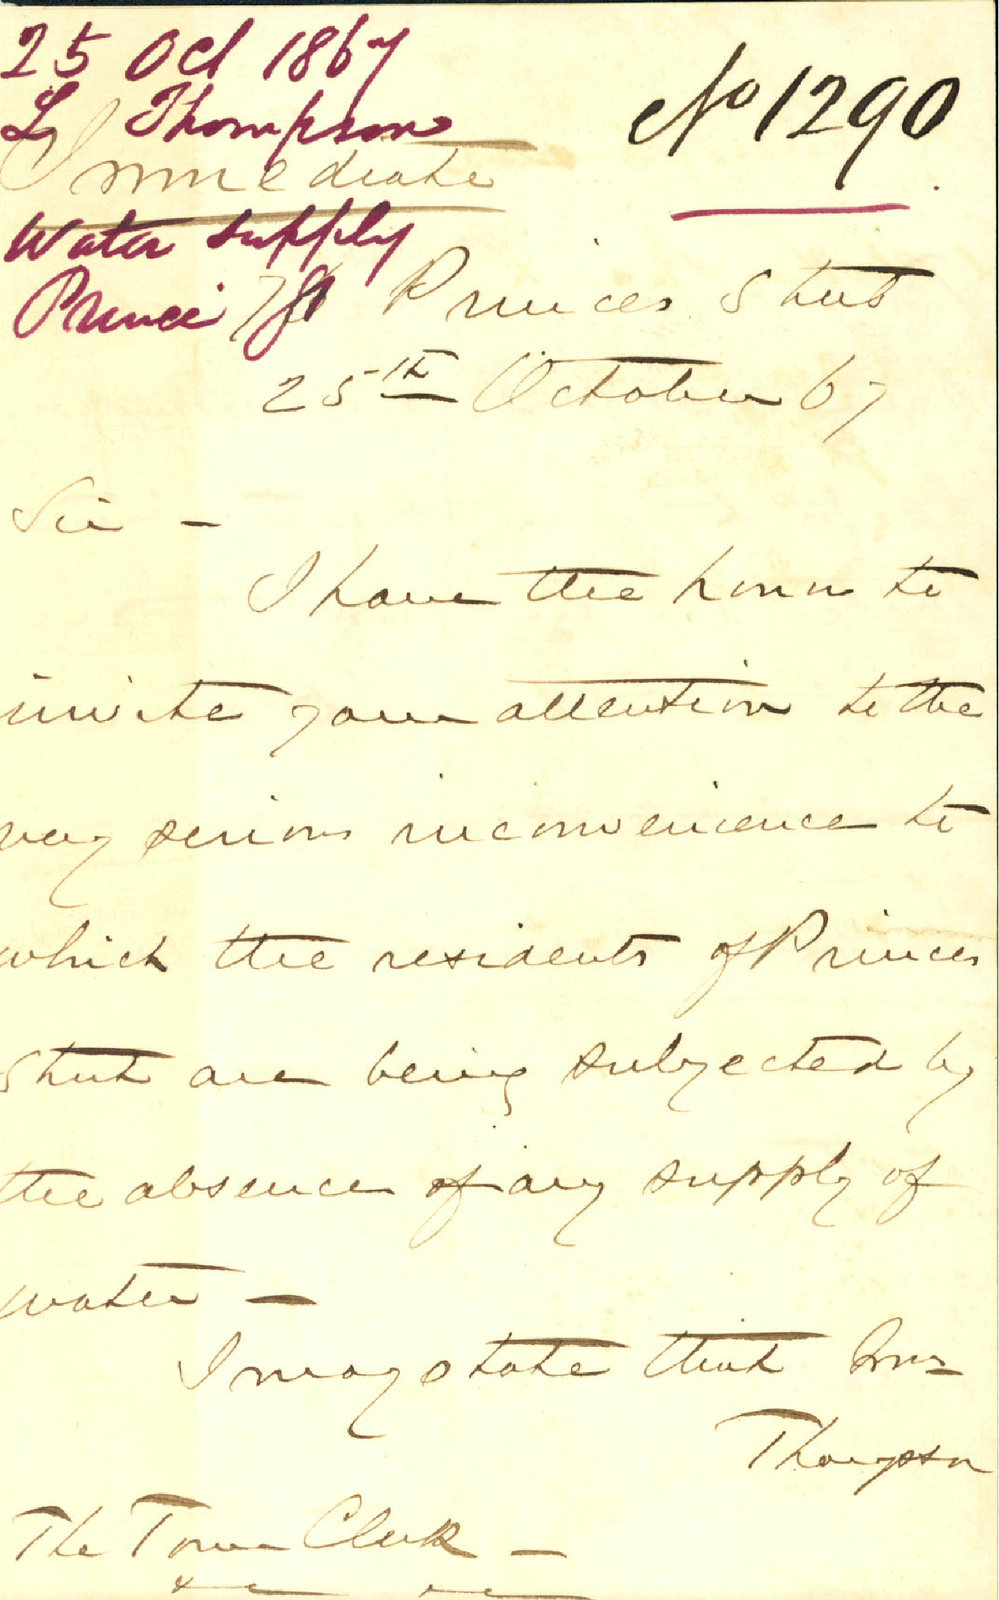 25 Oct 1867
No 1290
Lg Thompson
Immediate
Water supply
Princes St
Princes Street
25th October 67
Sir —
I have the honor to
invite your attention to the
very serious inconvenience to
which the residents of Princes
Street are being subjected by
the absence of any supply of
water —
I may state that Mrs
Thompson
The Town Clerk —